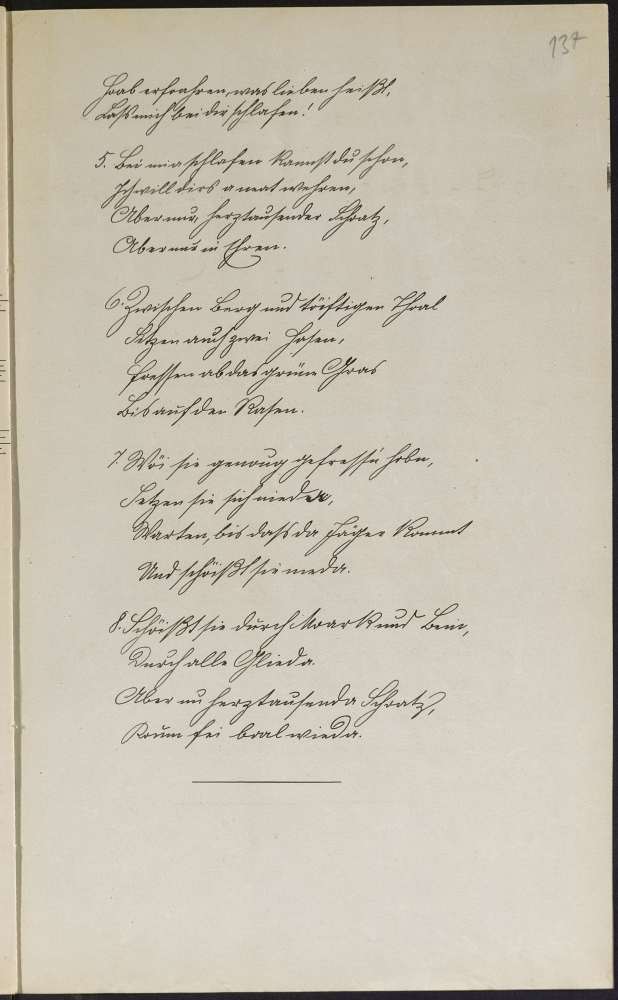 137
Hoab erfoahren, was lieben heißt,
Lass mich bei dir schlafen!
5. Bei mia schlafen kannst du schon,
Ich will dirs a neat wehren,
Aber nur, herztausender Schatz,
Aber nur in Ehren.
6. Zwischen Berg und töiftigen Thoal
Setzen auch zwei Hasen,
Fressen ab das grüne Gras
Bis auf den Rasen.
7. Wöi sie genoug gefressn hobn,
Setzen sie sich nieda,
Warten, bis dass da Jäger kommt
Und schöißt sie nieda.
8. Schöißt sie durch Moark und Bein,
Durch alle Glieda.
Aber nu herztausenda Schoatz,
Koum fei boal wieda.